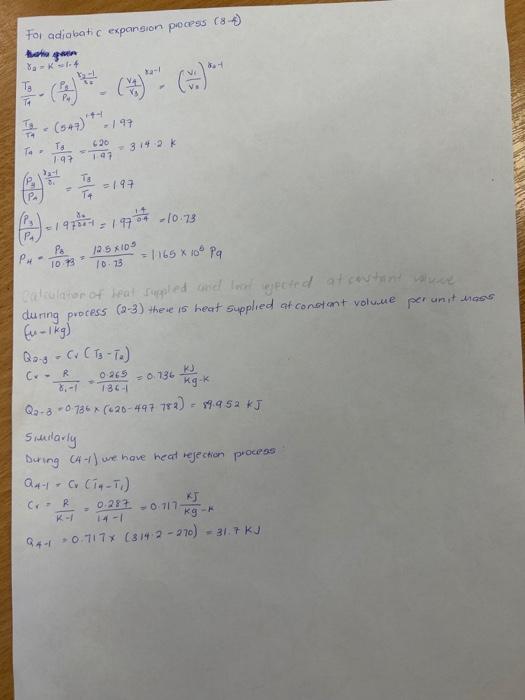 For adiabatic expansion process (3-4)
γ₂ = K = 1.4
T₃/T₄ = (P₃/P₄)^((γ₂-1)/γ₂) = (V₄/V₃)^(γ₂-1) = (V₁/V₂)^(γ₂-1)
T₃/T₄ = (547)^(1.4-1) = 1.97
T₄ = T₃/1.97 = 620/1.97 = 314.2 K
(P₃/P₄)^((γ₂-1)/γ₂) = T₃/T₄ = 1.97
(P₃/P₄) = 1.97^(γ₂/(γ₂-1)) = 1.97^(1.4/0.4) = 10.73
P₄ = P₃/10.73 = 12.5 x 10⁵/10.73 = 1.165 x 10⁵ Pa
Calculation of heat supplied and heat rejected at constant volume
during process (2-3) there is heat supplied at constant volume per unit mass
(m = 1kg)
Q₂₋₃ = Cv (T₃ - T₂)
Cv = R/(γ₁-1) = 0.265/(1.36-1) = 0.736 KJ/Kg.K
Q₂₋₃ = 0.736 x (620 - 497.782) = 89.952 KJ
Similarly
During (4-1) we have heat rejection process
Q₄₋₁ = Cv (T₄ - T₁)
Cv = R/(K-1) = 0.287/(1.4-1) = 0.717 KJ/Kg-K
Q₄₋₁ = 0.717 x (314.2 - 270) = 31.7 KJ